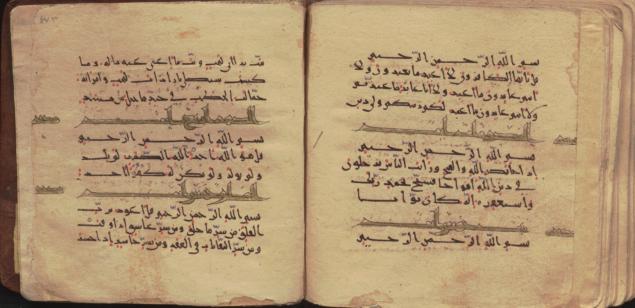 بسم الله الرحمن الرحيم
قل يايها الكافرون لا اعبد ما تعبدون ولا
انتم عابدون ما اعبد ولا انا عابد ما عبدتم
ولا انتم عابدون ما اعبد لكم دينكم ولي دين
بسم الله الرحمن الرحيم
اذا جا نصر الله والفتح ورايت الناس يدخلون
في دين الله افواجا فسبح بحمد ربك
واستغفره انه كان توابا
بسم الله الرحمن الرحيم
تبت يدا ابي لهب وتب ما اغنى عنه ماله وما
كسب سيصلى نارا ذات لهب وامراته
حمالة الحطب في جيدها حبل من مسد
بسم الله الرحمن الرحيم
قل هو الله احد الله الصمد لم يلد
ولم يولد ولم يكن له كفوا احد
بسم الله الرحمن الرحيم قل اعوذ برب
الفلق من شر ما خلق ومن شر غاسق اذا وقب
ومن شر النفاثات في العقد ومن شر حاسد اذا حسد